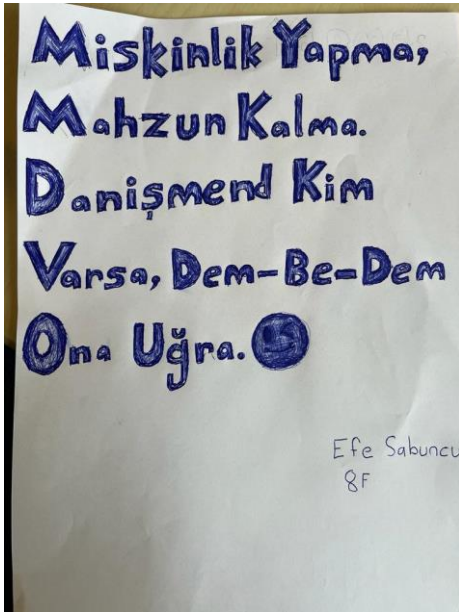 Miskinlik Yapma,
Mahzun Kalma.
Danişmend Kim
Varsa, Dem-Be-Dem
Ona Uğra.
Efe Sabuncu
8F